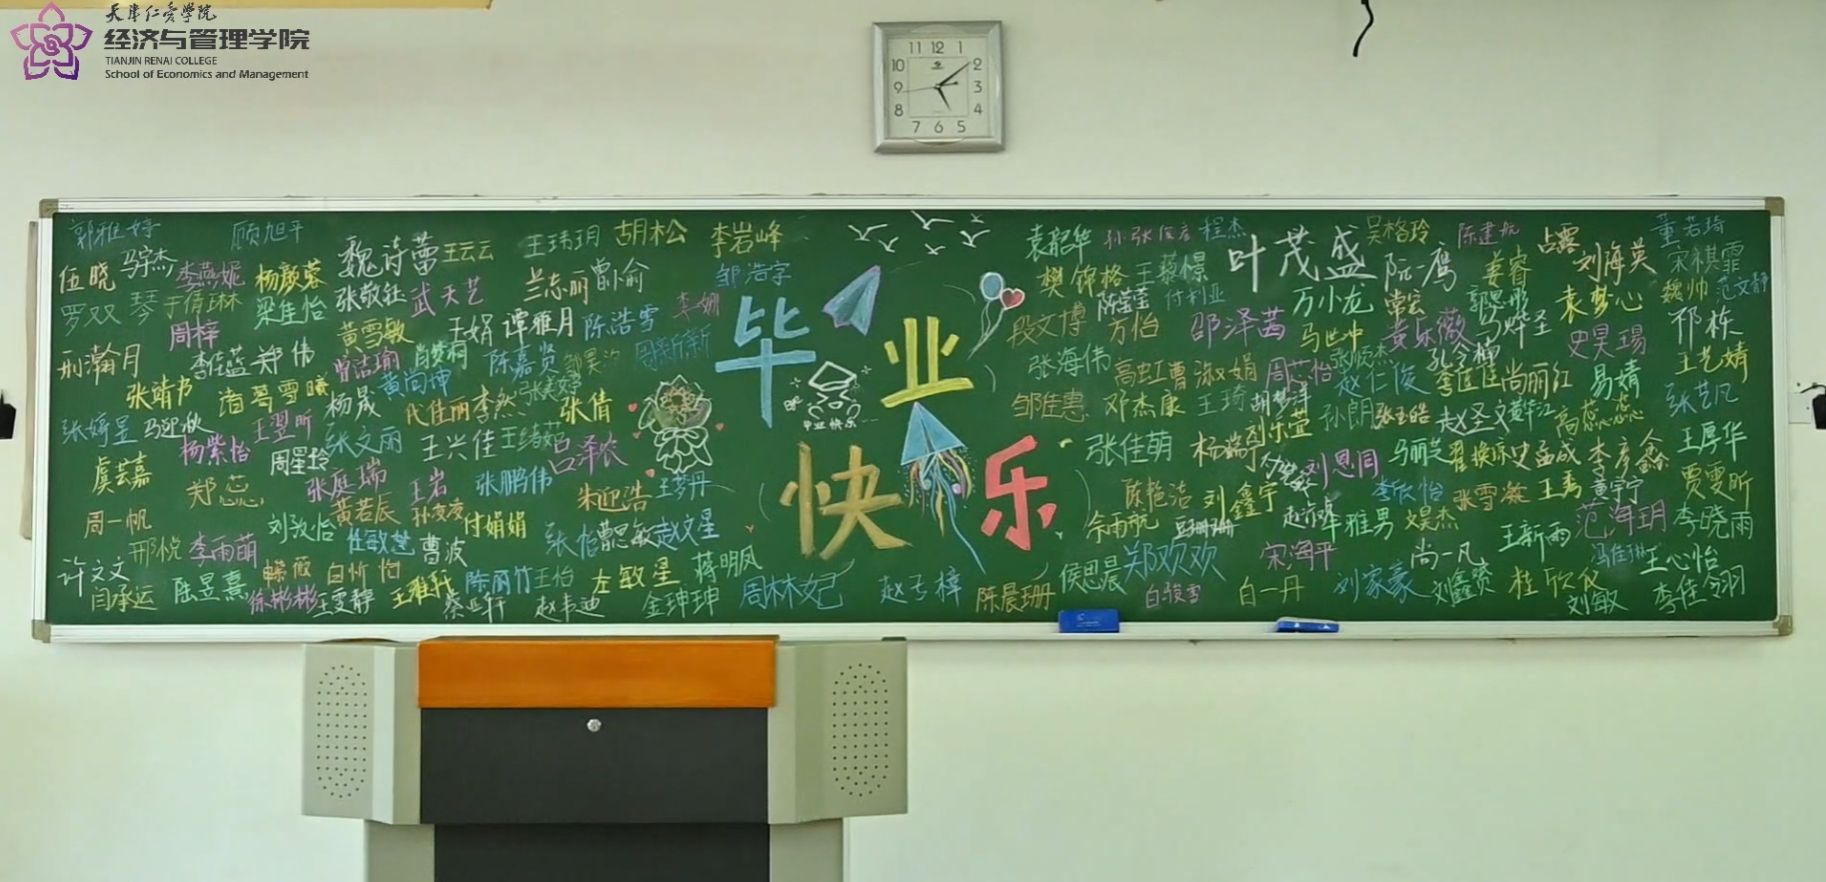 天津仁爱学院
经济与管理学院
TIANJIN RENAI COLLEGE
School of Economics and Management
11 12 1
10 2
9 3
8 4
7 6 5
郭雅婷 顾旭平 王云云 王玮玥 胡松 李岩峰
伍晓 马宇杰 李燕妮 魏诗蕾 兰志丽 邹浩宇
罗双琴 于倩琳 梁佳怡 张敬钰 武天艺 李娜
周梓 黄雪敏 王娟 谭雅月 陈浩雪
邢瀚月 郑伟 曾洁瑜 陈嘉贤
张靖书 诸葛雪曦 杨晟 黄尚坤 代佳丽 李然 张美婷 张倩
张婷昱 马迎秋 王翌昕 张文丽 王兴佳 吕泽浓
杨紫怡 周星玲
虞芸嘉 郑蕊 张庭瑞 王岩 张鹏伟 朱迎浩 王梦丹
周一帆 刘汝怡 黄若辰 付娟娟 赵文星
邢悦 李雨萌 任敏芝 曹波 蒋明凤
许文文 白忻怡 陈丽竹 王怡 左敏星
闫承运 陆昱熹 徐彬彬 王雯静 王雅轩 金珅珅 周林妃 赵子梓 陈晨珊
毕业
毕业快乐
快乐
袁韶华 程杰 叶茂盛 吴格玲 陈建航 占霖 董若琦
樊锦格 王黎憬 阮鹰 姜睿 刘海英 宋祺霏
段文博 陈莹莹 付利亚 万小龙 常宏 袁梦心 魏帅 范文静
万怡 邵泽茜 马世冲 黄乐薇 马烨圣 史昊玚 祁栋
张海伟 高虹 曹淑娟 周芯怡 张顺杰 赵仁俊 李佳佳 尚丽红 易婧 王艺婧
邹佳惠 邓杰康 王琦 胡梦洋 孙朗 张玉皓 赵圣文 高蕊 张艺凡
张佳萌 杨端 刘乐萱 刘恩同 马丽芝 翟换院 史孟成 李彦鑫 王厚华
陈艳洁 刘鑫宇 李欣怡 张雪敏 王青 黄宇宁 贾雯昕
余雨航 毕雅男 文昊杰 王新雨 范海玥 李晓雨
侯思晨 郑欢欢 宋海平 尚一凡 冯佳琳 王心怡
白骏雪 白一丹 刘家豪 刘鑫赟 杜欣仪 刘敏 李佳翎